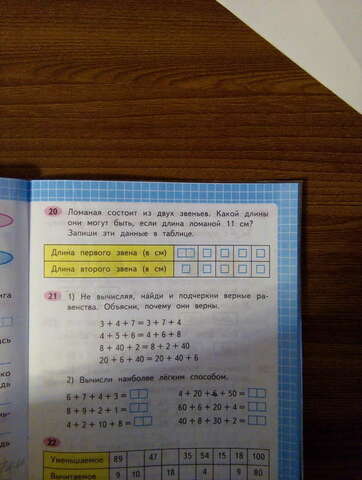 20 Ломаная состоит из двух звеньев. Какой длины
они могут быть, если длина ломаной 11 см?
Запиши эти данные в таблице.
Длина первого звена (в см)
Длина второго звена (в см)
21 1) Не вычисляя, найди и подчеркни верные ра-
венства. Объясни, почему они верны.
3 + 4 + 7 = 3 + 7 + 4
4 + 5 + 6 = 4 + 6 + 8
8 + 40 + 2 = 8 + 2 + 40
20 + 6 + 40 = 20 + 40 + 6
2) Вычисли наиболее лёгким способом.
6 + 7 + 4 + 3 = 4 + 20 + 6 + 50 =
8 + 9 + 2 + 1 = 60 + 6 + 20 + 4 =
4 + 2 + 10 + 8 = 40 + 8 + 30 + 2 =
22
Уменьшаемое 89 47 35 54 15 18 100
Вычитаемое 9 10 18 4 9 80